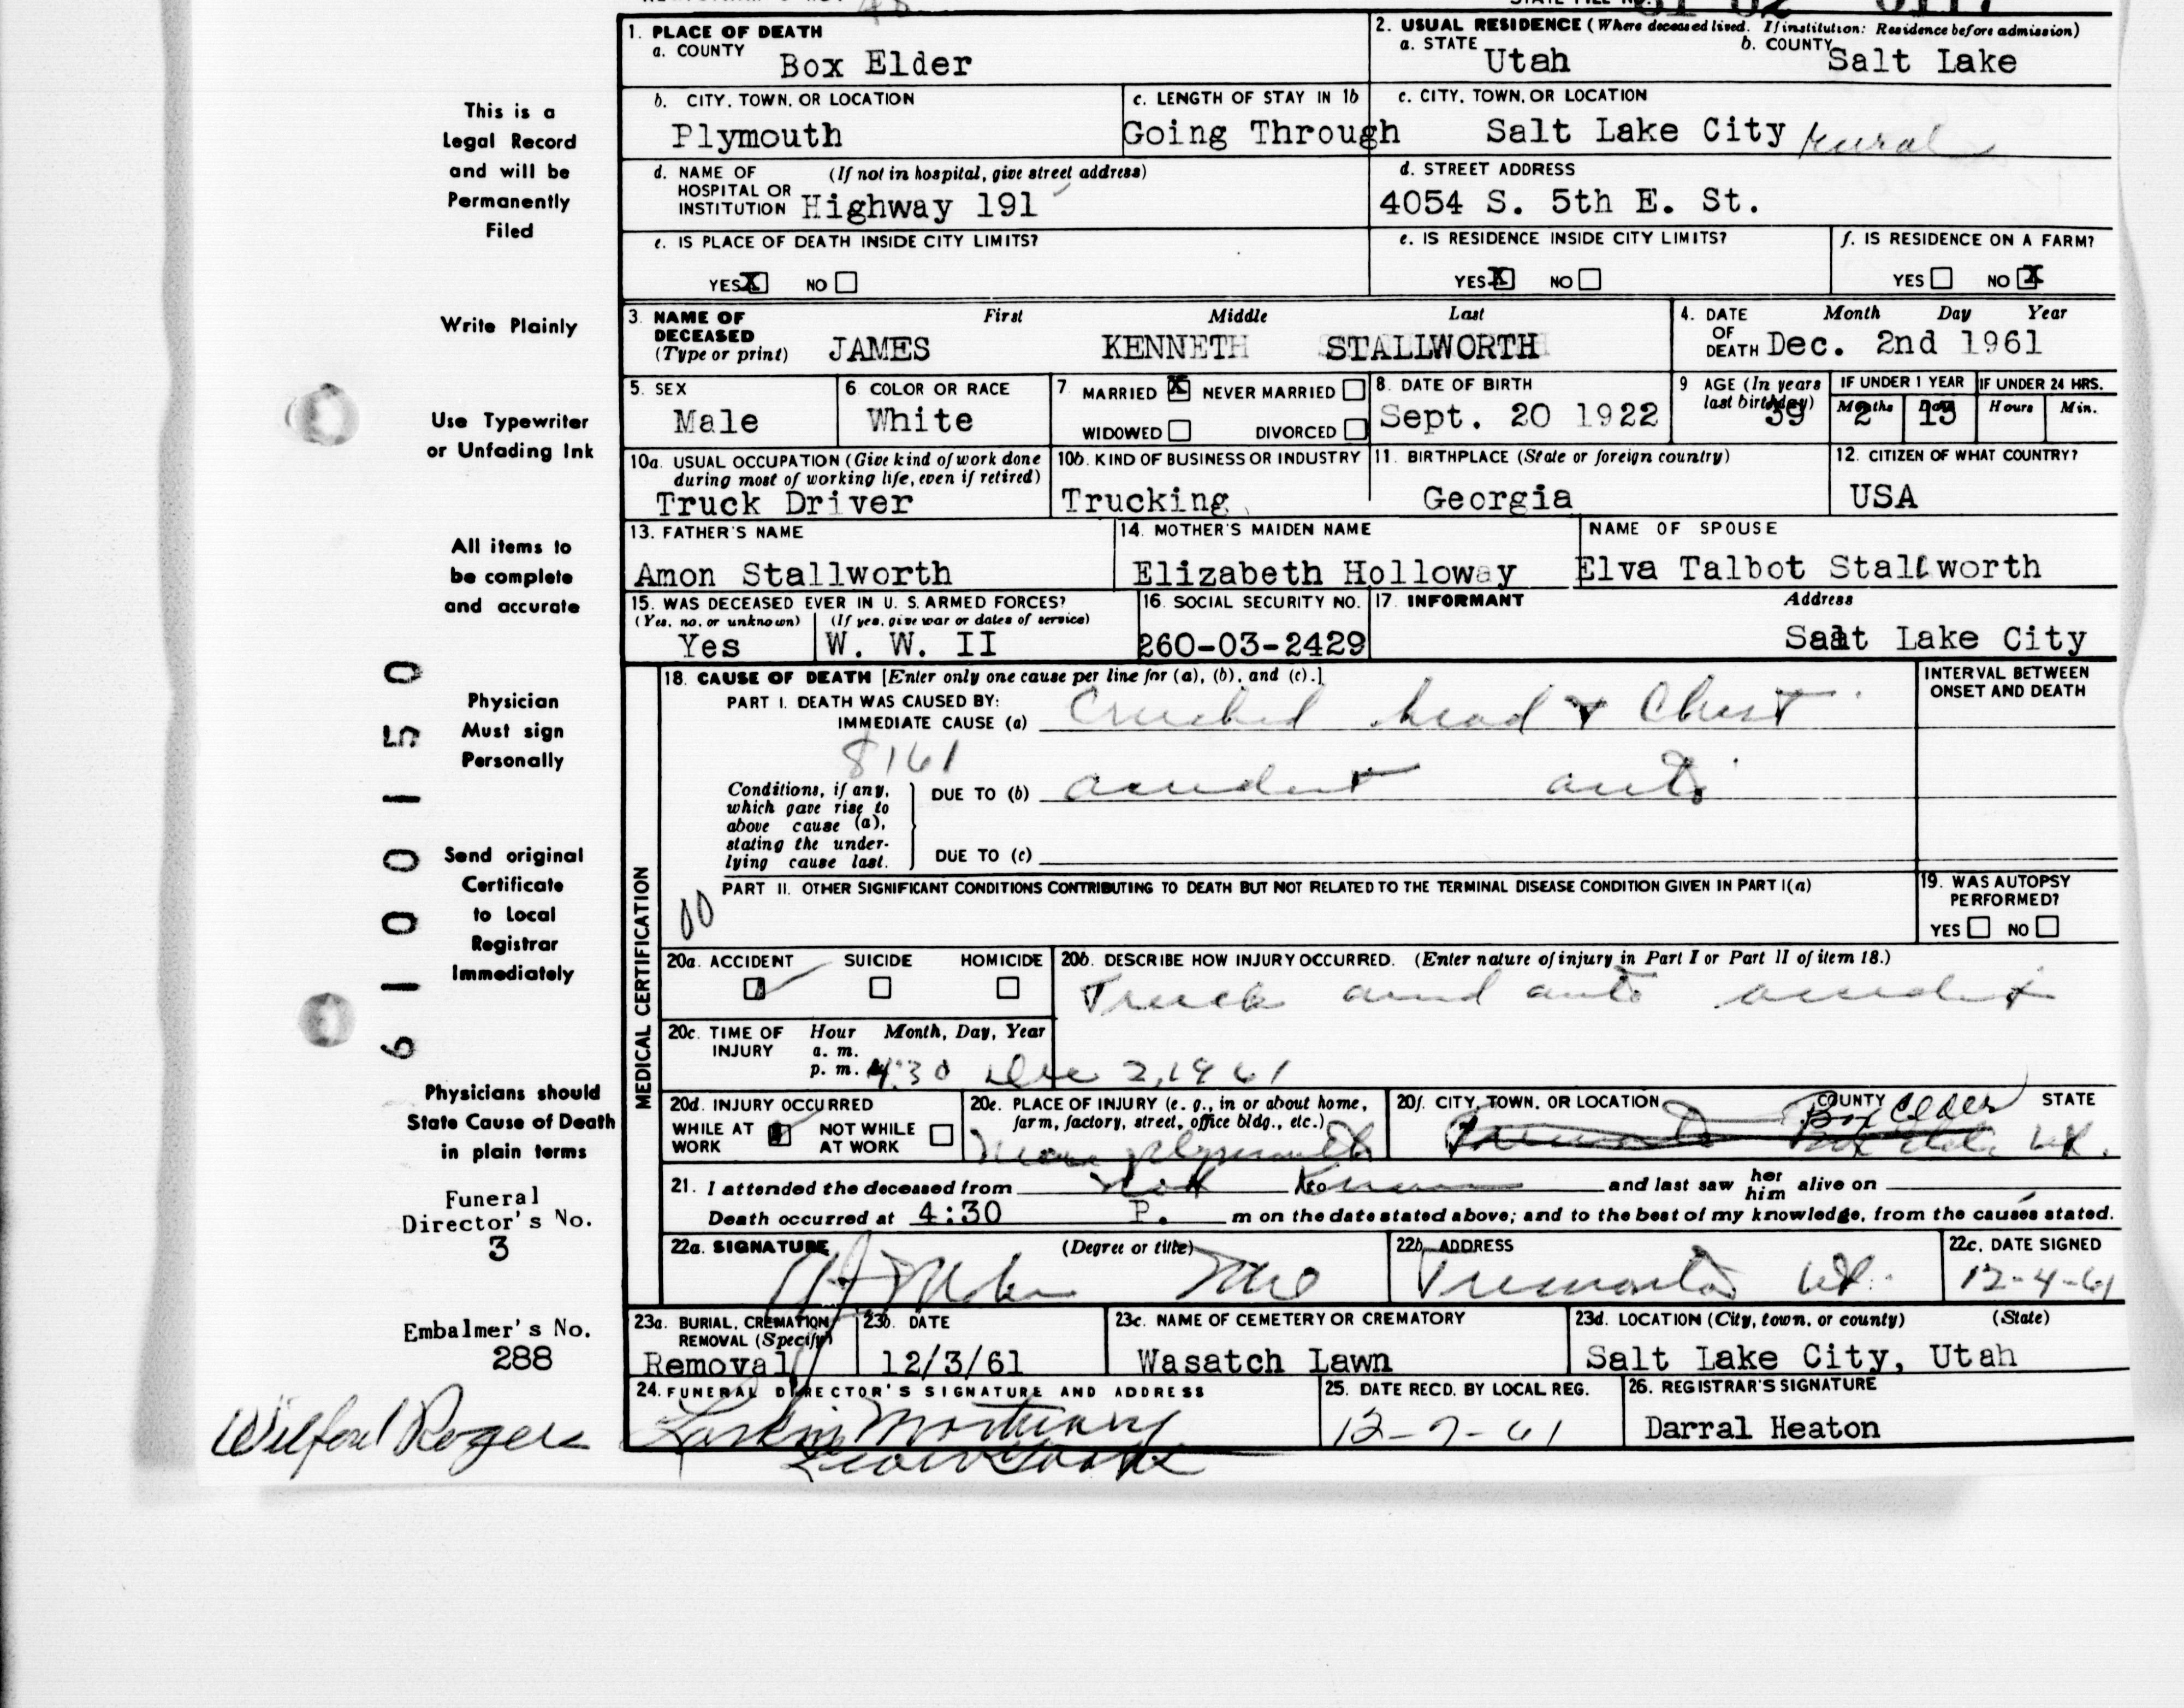 1. PLACE OF DEATH
a. COUNTY Box Elder
2. USUAL RESIDENCE (Where deceased lived. If institution: Residence before admission)
a. STATE Utah b. COUNTY Salt Lake
b. CITY, TOWN, OR LOCATION Plymouth
c. LENGTH OF STAY IN 1b Going Through
c. CITY, TOWN, OR LOCATION Salt Lake City rural
d. NAME OF HOSPITAL OR INSTITUTION (If not in hospital, give street address) Highway 191
d. STREET ADDRESS 4054 S. 5th E. St.
e. IS PLACE OF DEATH INSIDE CITY LIMITS? YES X NO
e. IS RESIDENCE INSIDE CITY LIMITS? YES X NO
f. IS RESIDENCE ON A FARM? YES NO X
3. NAME OF DECEASED (Type or print) First Middle Last
JAMES KENNETH STALLWORTH
4. DATE OF DEATH Month Day Year
Dec. 2nd 1961
5. SEX Male
6. COLOR OR RACE White
7 MARRIED X NEVER MARRIED
WIDOWED DIVORCED
8. DATE OF BIRTH Sept. 20 1922
9 AGE (In years last birthday) 39
IF UNDER 1 YEAR Months 2 Days 13
IF UNDER 24 HRS. Hours Min.
10a. USUAL OCCUPATION (Give kind of work done during most of working life, even if retired)
Truck Driver
10b. KIND OF BUSINESS OR INDUSTRY
Trucking
11. BIRTHPLACE (State or foreign country)
Georgia
12. CITIZEN OF WHAT COUNTRY?
USA
13. FATHER'S NAME
Amon Stallworth
14. MOTHER'S MAIDEN NAME
Elizabeth Holloway
NAME OF SPOUSE
Elva Talbot Stallworth
15. WAS DECEASED EVER IN U. S. ARMED FORCES?
(Yes, no, or unknown) (If yes, give war or dates of service)
Yes W. W. II
16. SOCIAL SECURITY NO.
260-03-2429
17. INFORMANT Address
Salt Lake City
MEDICAL CERTIFICATION
18. CAUSE OF DEATH [Enter only one cause per line for (a), (b), and (c).]
PART I. DEATH WAS CAUSED BY:
IMMEDIATE CAUSE (a) Crushed head & Chest
8161
Conditions, if any, which gave rise to above cause (a), stating the underlying cause last.
DUE TO (b) accident auto
DUE TO (c)
INTERVAL BETWEEN ONSET AND DEATH
PART II. OTHER SIGNIFICANT CONDITIONS CONTRIBUTING TO DEATH BUT NOT RELATED TO THE TERMINAL DISEASE CONDITION GIVEN IN PART I(a)
00
19. WAS AUTOPSY PERFORMED?
YES NO
20a. ACCIDENT SUICIDE HOMICIDE
20b. DESCRIBE HOW INJURY OCCURRED. (Enter nature of injury in Part I or Part II of item 18.)
Truck and auto accident
20c. TIME OF INJURY Hour Month, Day, Year
a. m.
p. m. 4:30 Dec 2, 1961
20d. INJURY OCCURRED
WHILE AT WORK NOT WHILE AT WORK
20e. PLACE OF INJURY (e. g., in or about home, farm, factory, street, office bldg., etc.)
near plymouth
20f. CITY, TOWN, OR LOCATION COUNTY STATE
Tremonton Box Elder Box Elder Ut.
21. I attended the deceased from not to and last saw her him alive on
Death occurred at 4:30 P. m on the date stated above; and to the best of my knowledge, from the causes stated.
22a. SIGNATURE (Degree or title)
22b. ADDRESS
Tremonton Ut.
22c. DATE SIGNED
12-4-61
23a. BURIAL, CREMATION, REMOVAL (Specify)
Removal
23b. DATE
12/3/61
23c. NAME OF CEMETERY OR CREMATORY
Wasatch Lawn
23d. LOCATION (City, town, or county) (State)
Salt Lake City, Utah
24. FUNERAL DIRECTOR'S SIGNATURE AND ADDRESS
Larkin Mortuary
25. DATE RECD. BY LOCAL REG.
12-7-61
26. REGISTRAR'S SIGNATURE
Darral Heaton
This is a
Legal Record
and will be
Permanently
Filed
Write Plainly
Use Typewriter
or Unfading Ink
All items to
be complete
and accurate
Physician
Must sign
Personally
Send original
Certificate
to Local
Registrar
Immediately
Physicians should
State Cause of Death
in plain terms
Funeral
Director's No.
3
Embalmer's No.
288
Wilford Rogers
61 00150